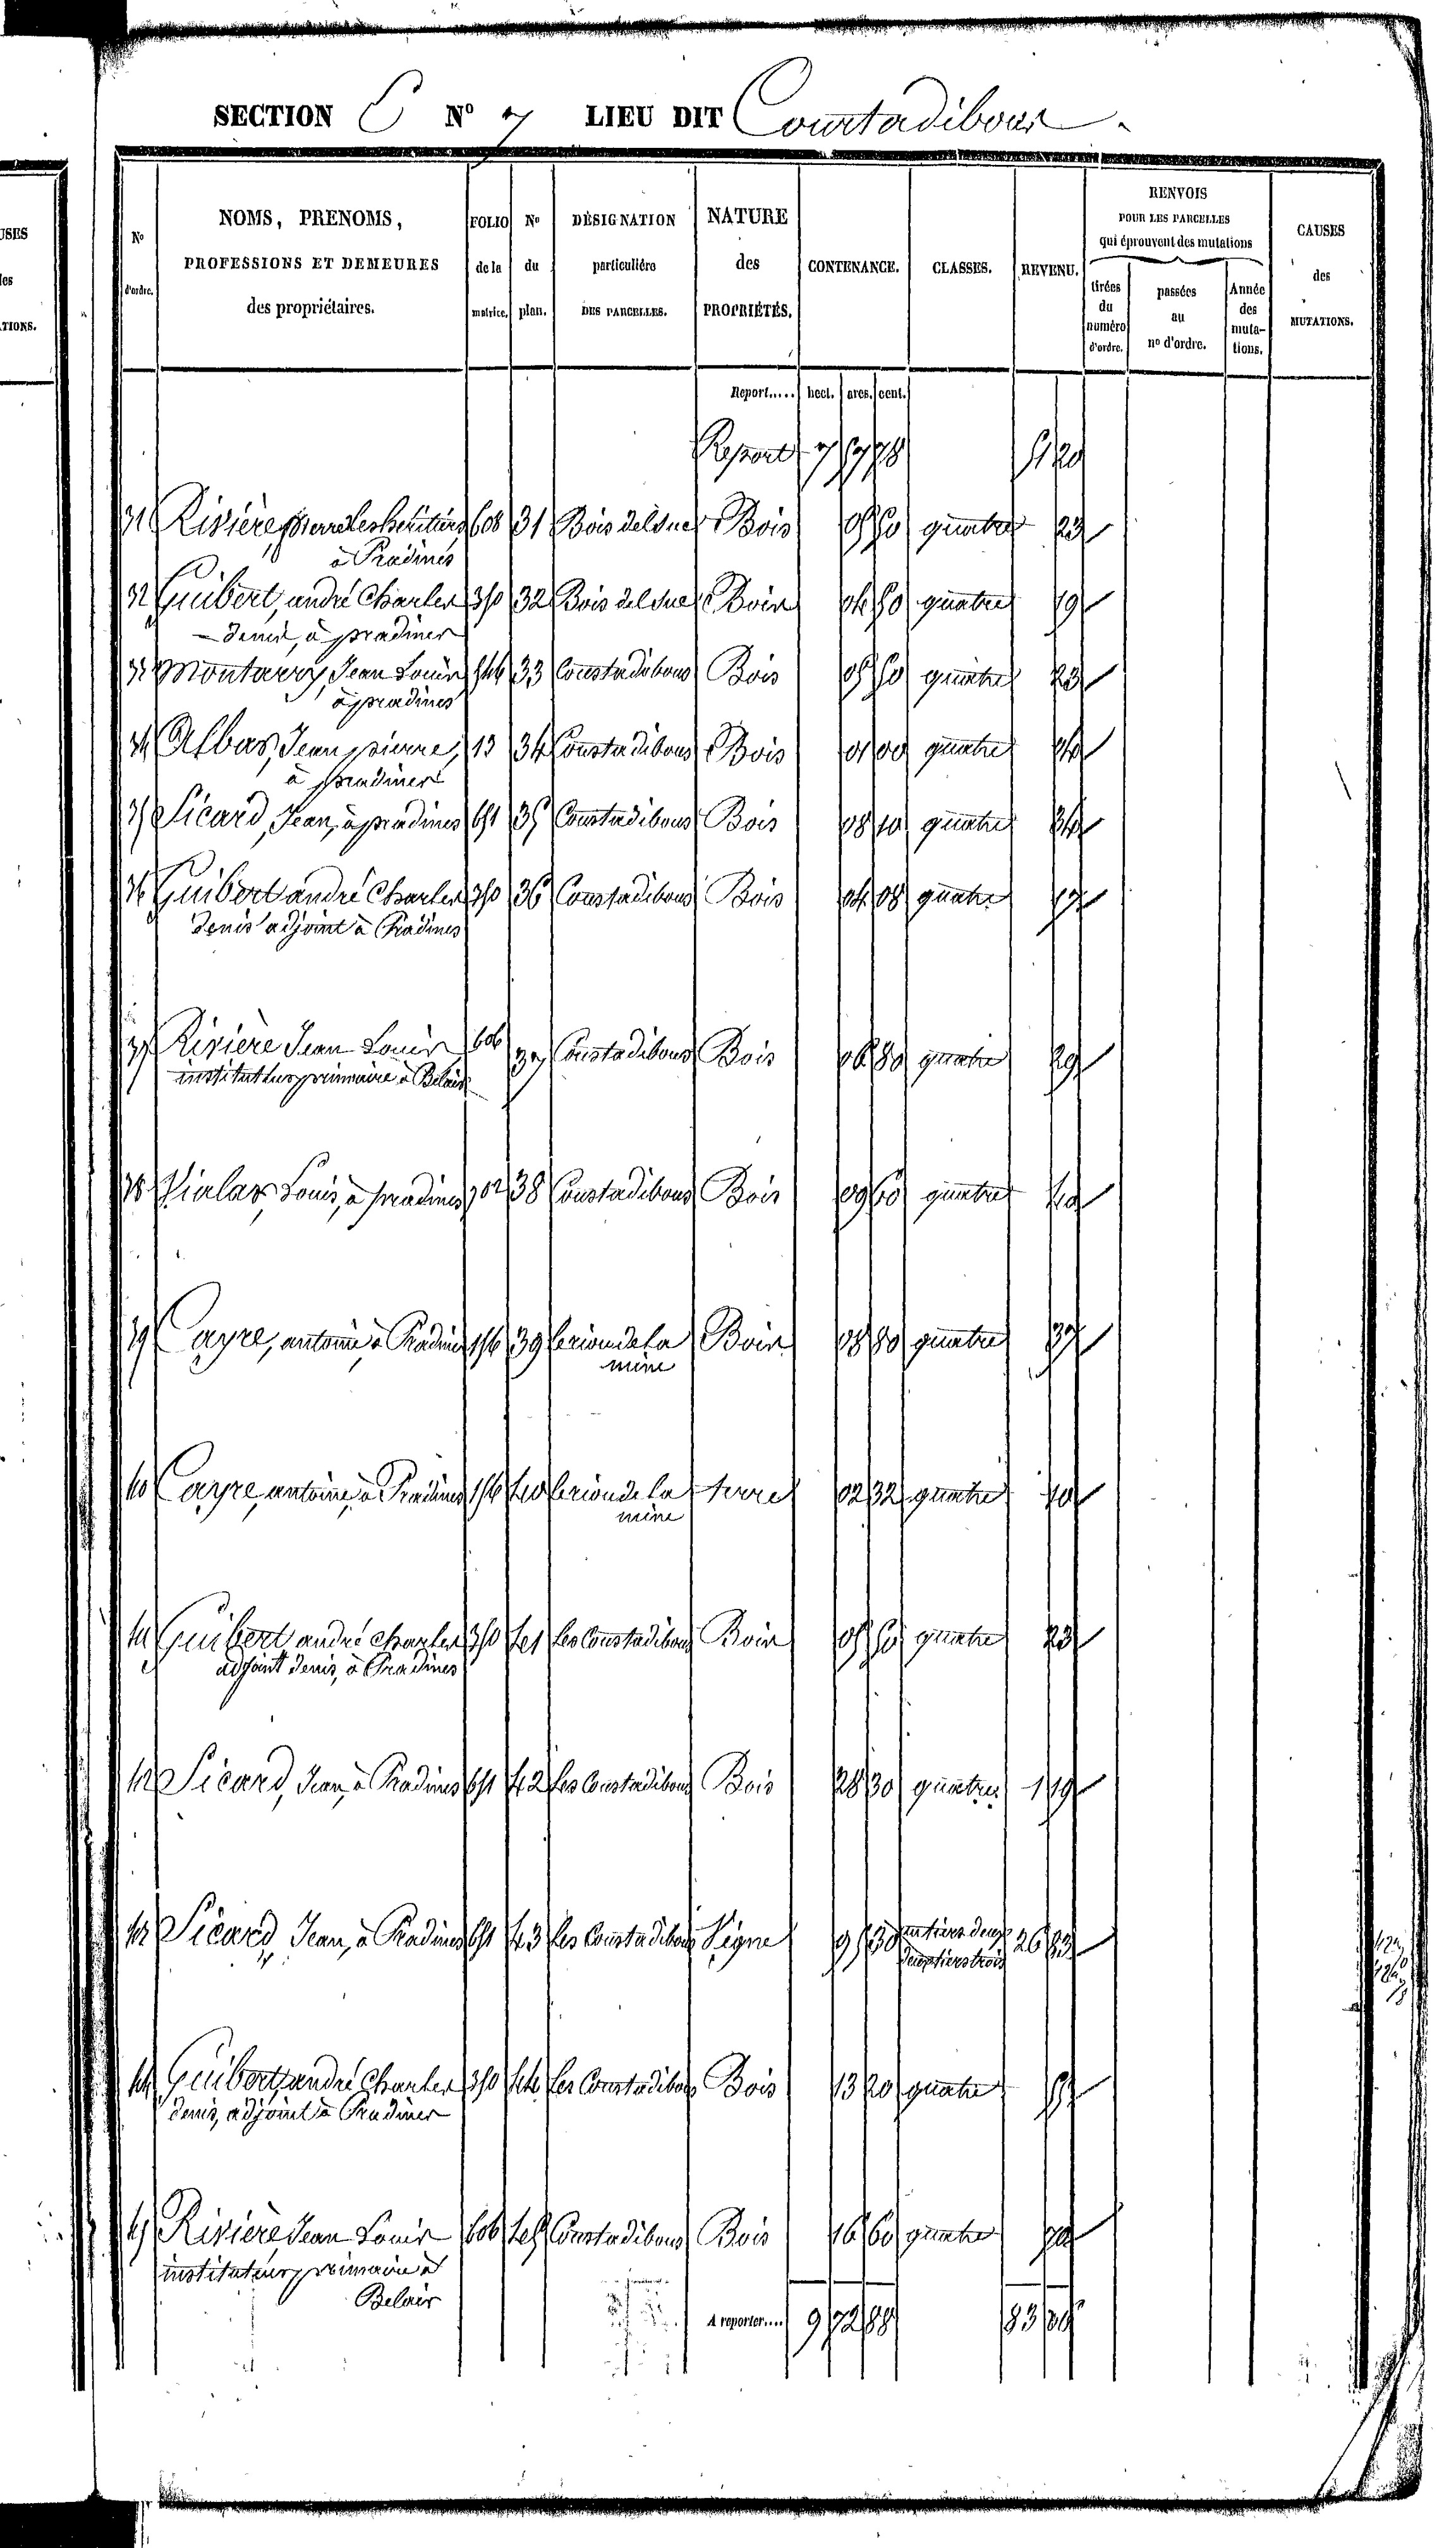 SECTION C N° 7 LIEU DIT Courtadibous
N° d'ordre.
NOMS, PRENOMS, PROFESSIONS ET DEMEURES des propriétaires.
FOLIO de la matrice.
N° du plan.
DÉSIGNATION particulière DES PARCELLES.
NATURE des PROPRIÉTÉS.
CONTENANCE.
CLASSES.
REVENU.
RENVOIS POUR LES PARCELLES qui éprouvent des mutations
tirées du numéro d'ordre.
passées au n° d'ordre.
Année des muta-tions.
CAUSES des MUTATIONS.
Report..... hect. ares. cent.
Report 7 57 78 51 20
31 Rivière, pierre les héritiers 608 31 Bois del suc Bois 05 50 quatre 23
à Pradines
32 Guibert, andré Charles 350 32 Bois del suc Bois 04 50 quatre 19
denis, à pradines
33 Montarry, Jean Louis 546 33 Coustadibous Bois 05 50 quatre 23
à pradines
34 Albas, Jean pierre, 13 34 Coustadibous Bois 01 00 quatre 04
à pradines
35 Sicard, Jean, à pradines 651 35 Coustadibous Bois 08 10 quatre 34
36 Guibert andré Charles 350 36 Coustadibous Bois 04 08 quatre 17
denis adjoint à Pradines
37 Rivière Jean Louis 606 37 Coustadibous Bois 06 80 quatre 29
instituteur primaire à Belair
38 Vialar, Louis, à pradines 702 38 Coustadibous Bois 09 60 quatre 40
39 Cayre, antoine à Pradines 156 39 le riou de la Bois 08 80 quatre 37
mine
40 Cayre, antoine, à Pradines 156 40 le riou de la terre 02 32 quatre 10
mine
41 Guibert andré charles 350 41 les Coustadibous Bois 05 50 quatre 23
adjoint denis, à Pradines
42 Sicard, Jean, à Pradines 651 42 les Coustadibous Bois 28 30 quatre 1 19
43 Sicard, Jean, à Pradines 651 43 les Coustadibous Vigne 95 30 un tiers deux 26 83
deux tiers trois
44 Guibert, andré Charles 350 44 les Coustadibous Bois 13 20 quatre 55
denis, adjoint à Pradines
45 Rivière Jean Louis 606 45 Coustadibous Bois 16 60 quatre 70
instituteur primaire à
Belair
A reporter.... 9 72 88 83 06